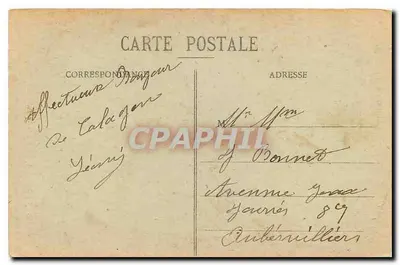 CARTE POSTALE
CORRESPONDANCE
ADRESSE
Affectueux Bonjour
de
M
Mr Mme
J Bonnet
Avenue Jean
Jaurès 89
Aubervilliers
CPARAMA